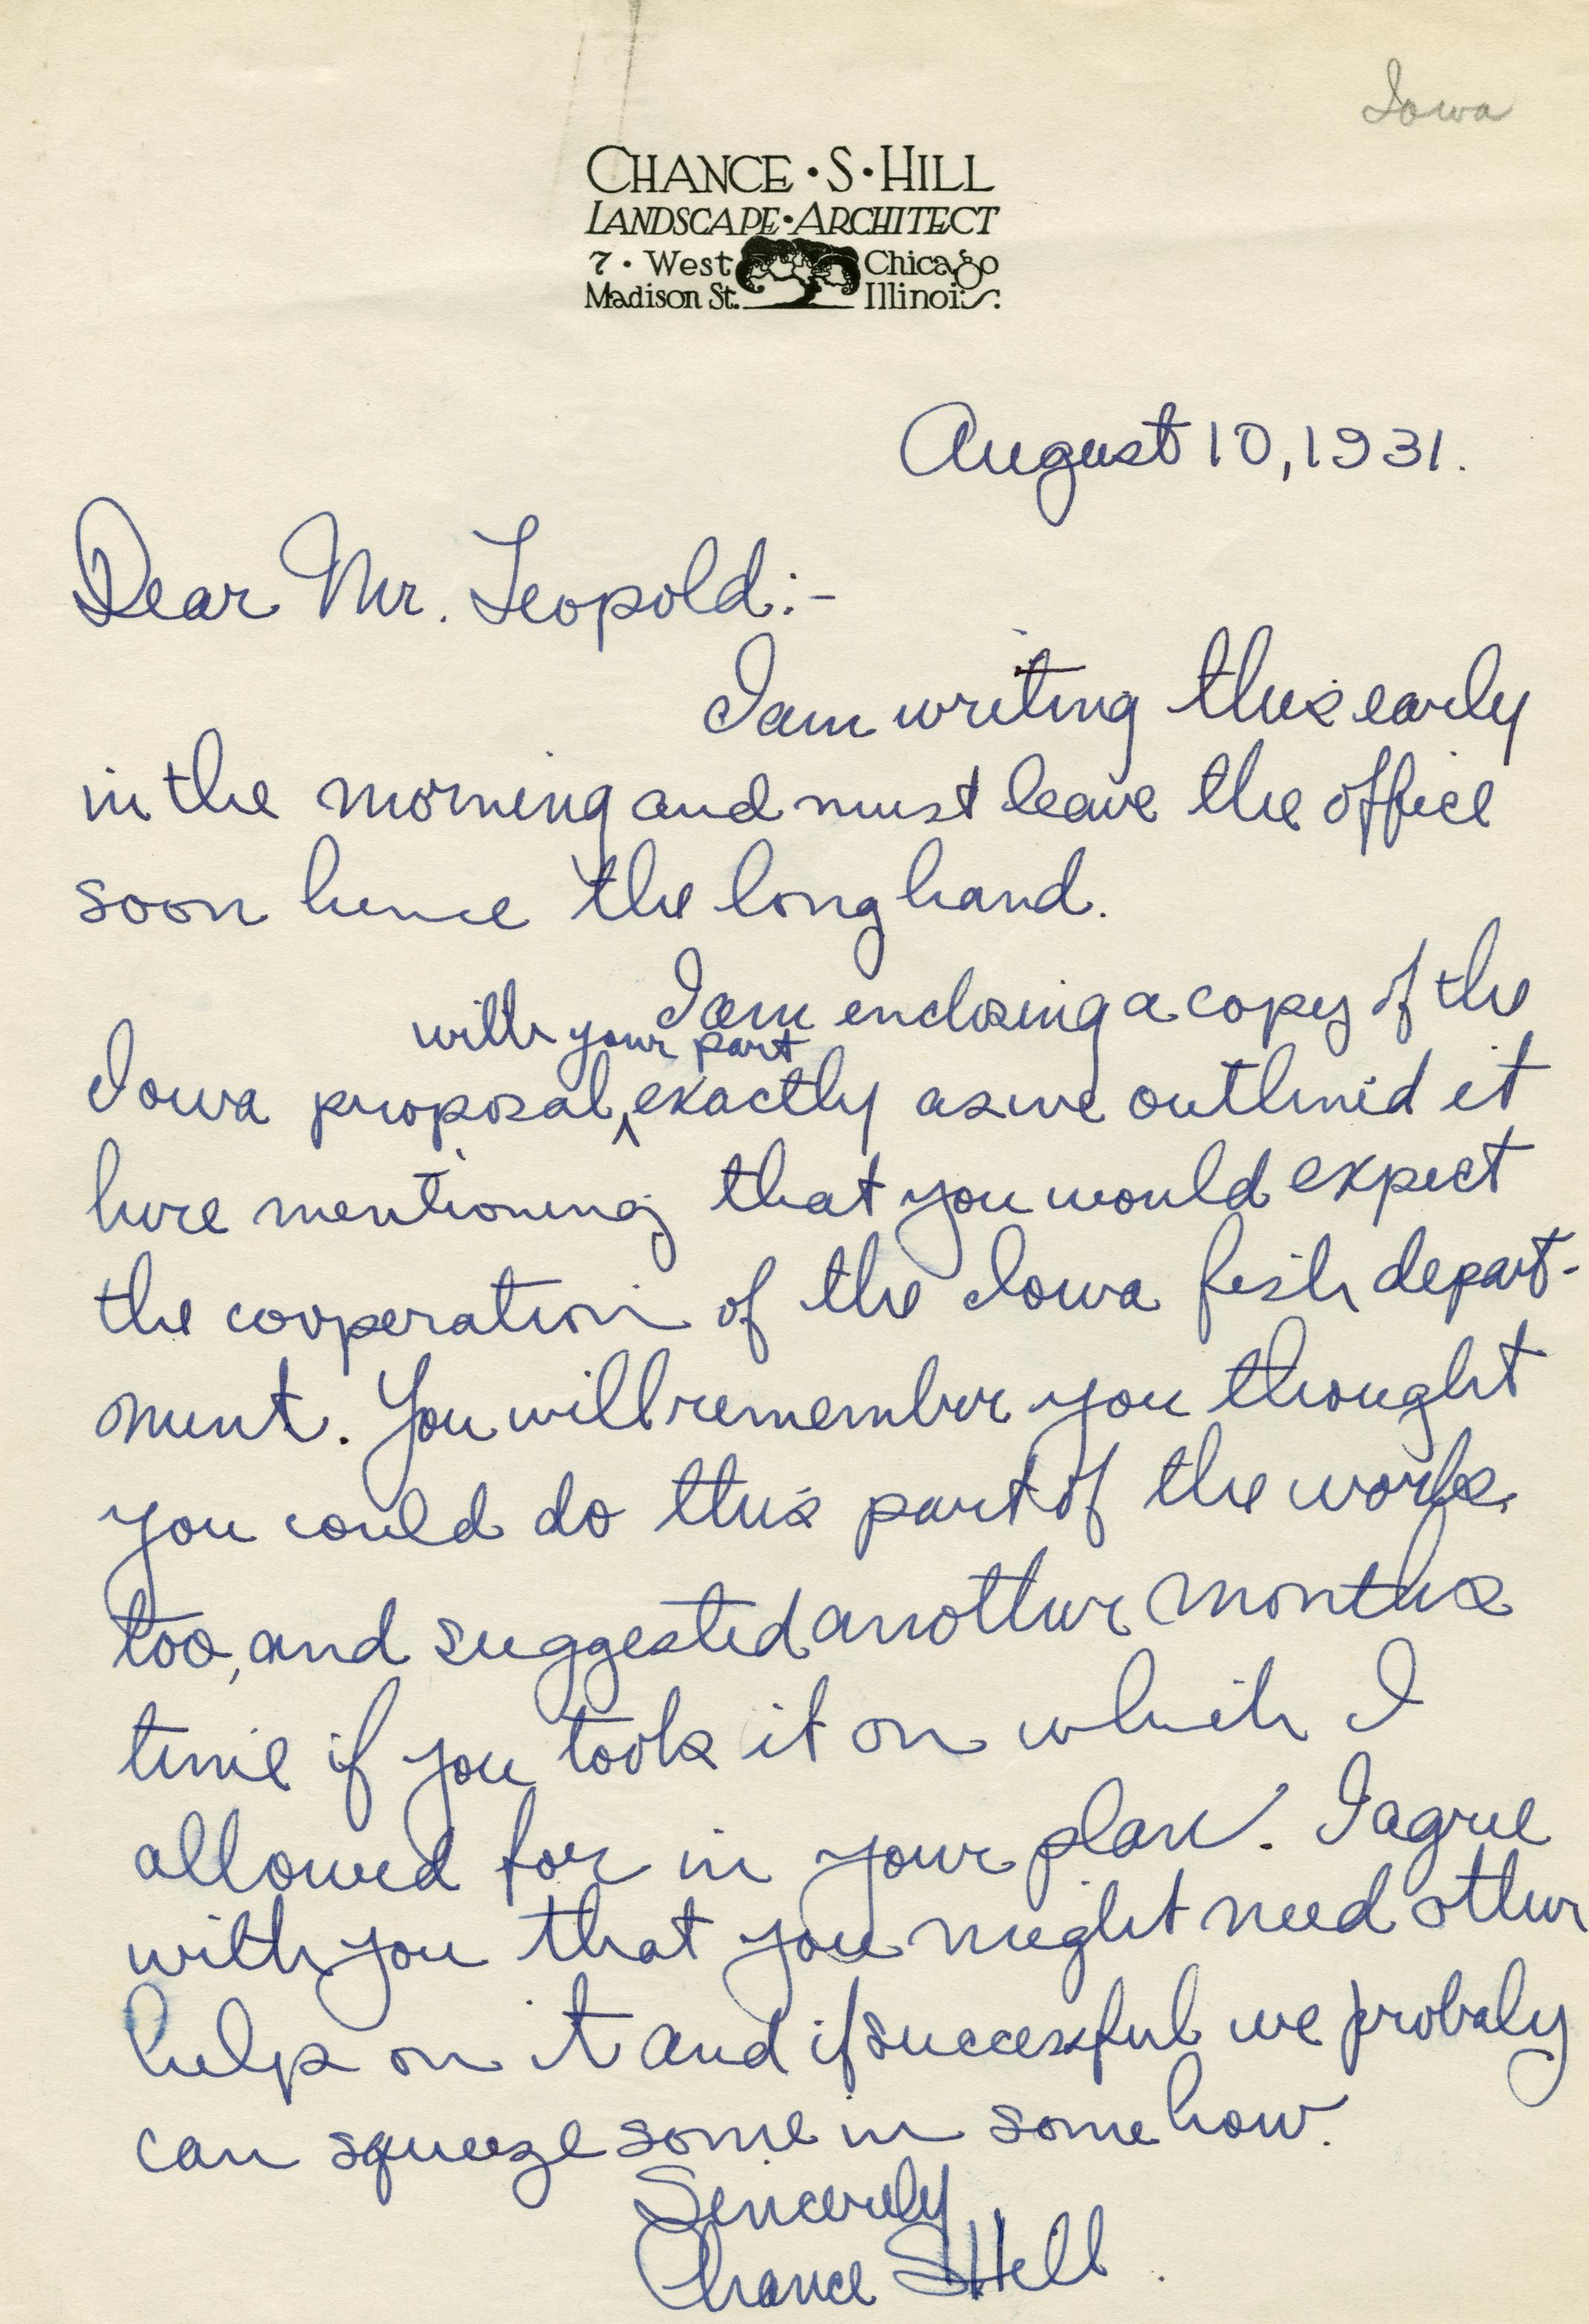 Iowa
CHANCE · S · HILL
LANDSCAPE · ARCHITECT
7 · West Chicago
Madison St. Illinois.
August 10, 1931.
Dear Mr. Leopold:-
I am writing this early
in the morning and must leave the office
soon hence the long hand.
I am enclosing a copy of the
with your part
Iowa proposal, ^ exactly as we outlined it
here mentioning that you would expect
the cooperation of the Iowa fish depart-
ment. You will remember you thought
you could do this part of the work
too, and suggested another months
time if you took it on which I
allowed for in your plan. I agree
with you that you might need other
help on it and if successful we probaly
can squeeze some in some how.
Sincerely
Chance S Hill.